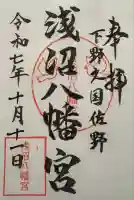 奉拝
下野之国佐野
浅沼八幡宮
令和七年十月十一日